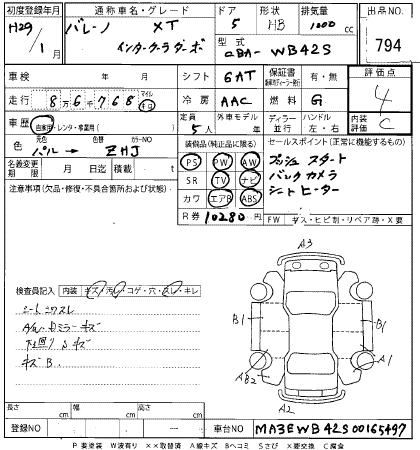 初度登録年月 通称車名・グレード ドア 形状 排気量 出品NO.
H29 バレーノ XT 5 HB 1000 cc
/1月 インタークーラターボ 型式 CBA-WB42S 794
車検 年 月 シフト 6AT 保証書 有・無 評価点
走行 86768 マイル km 冷房 AAC 燃料 G 4
車歴 自家用・レンタ・営業用( ) 定員 5人 外車モデル 年 ディーラー 並行 ハンドル 左・右 内装評価 C
色 元色 パール → 色替 カラーNO ZHJ
装備品(純正品に限る) セールスポイント(正常に機能するもの)
名義変更期限 月 日迄 積載 t
PS PW AW プッシュスタート
SR TV ナビ バックカメラ
カワ エアB ABS シートヒーター
注意事項(欠品・修復・不具合箇所および状態)
R券 10280 円 FW キズ・ヒビ割・リペア跡・X要
A3
検査員記入 内装 キズ・汚レ・コゲ・穴・スレ・キレ
B1 B1
シートスレ
A/W. ドミラーキズ
下回りSキズ
キズB.
A1
AB2
A2
長さ cm 幅 cm 高さ cm
登録NO ー 車台NO MA3EWB42S00165497
P要塗装 W波有り XX取替済 A線キズ Bヘコミ Sさび X要交換 C腐食